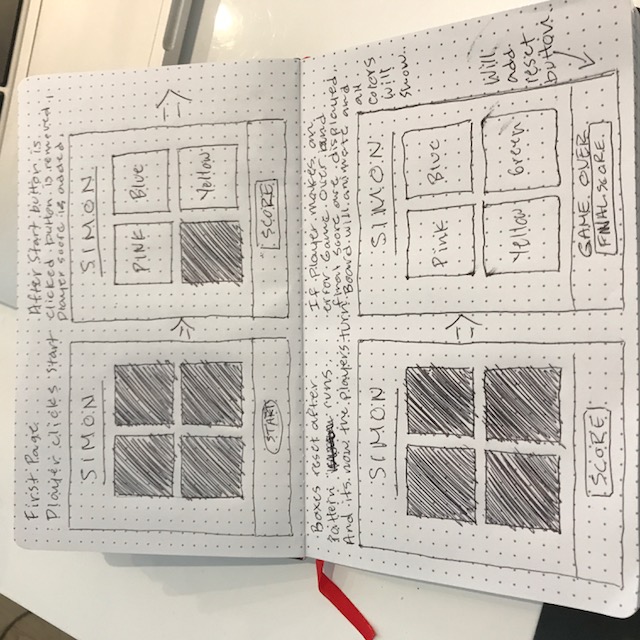 First Page
Player clicks Start
SIMON
START
After Start button is
clicked button is removed,
player score is added.
SIMON
PINK Blue
Yellow
SCORE
Boxes reset after
Pattern runs.
And its now the players turn.
SIMON
SCORE
If player makes an
error Game Over and
final score are displayed.
Board will animate and
all
colors
will
show.
SIMON
Pink Blue
Yellow Green
GAME OVER
FINAL SCORE
Will
add
reset
button